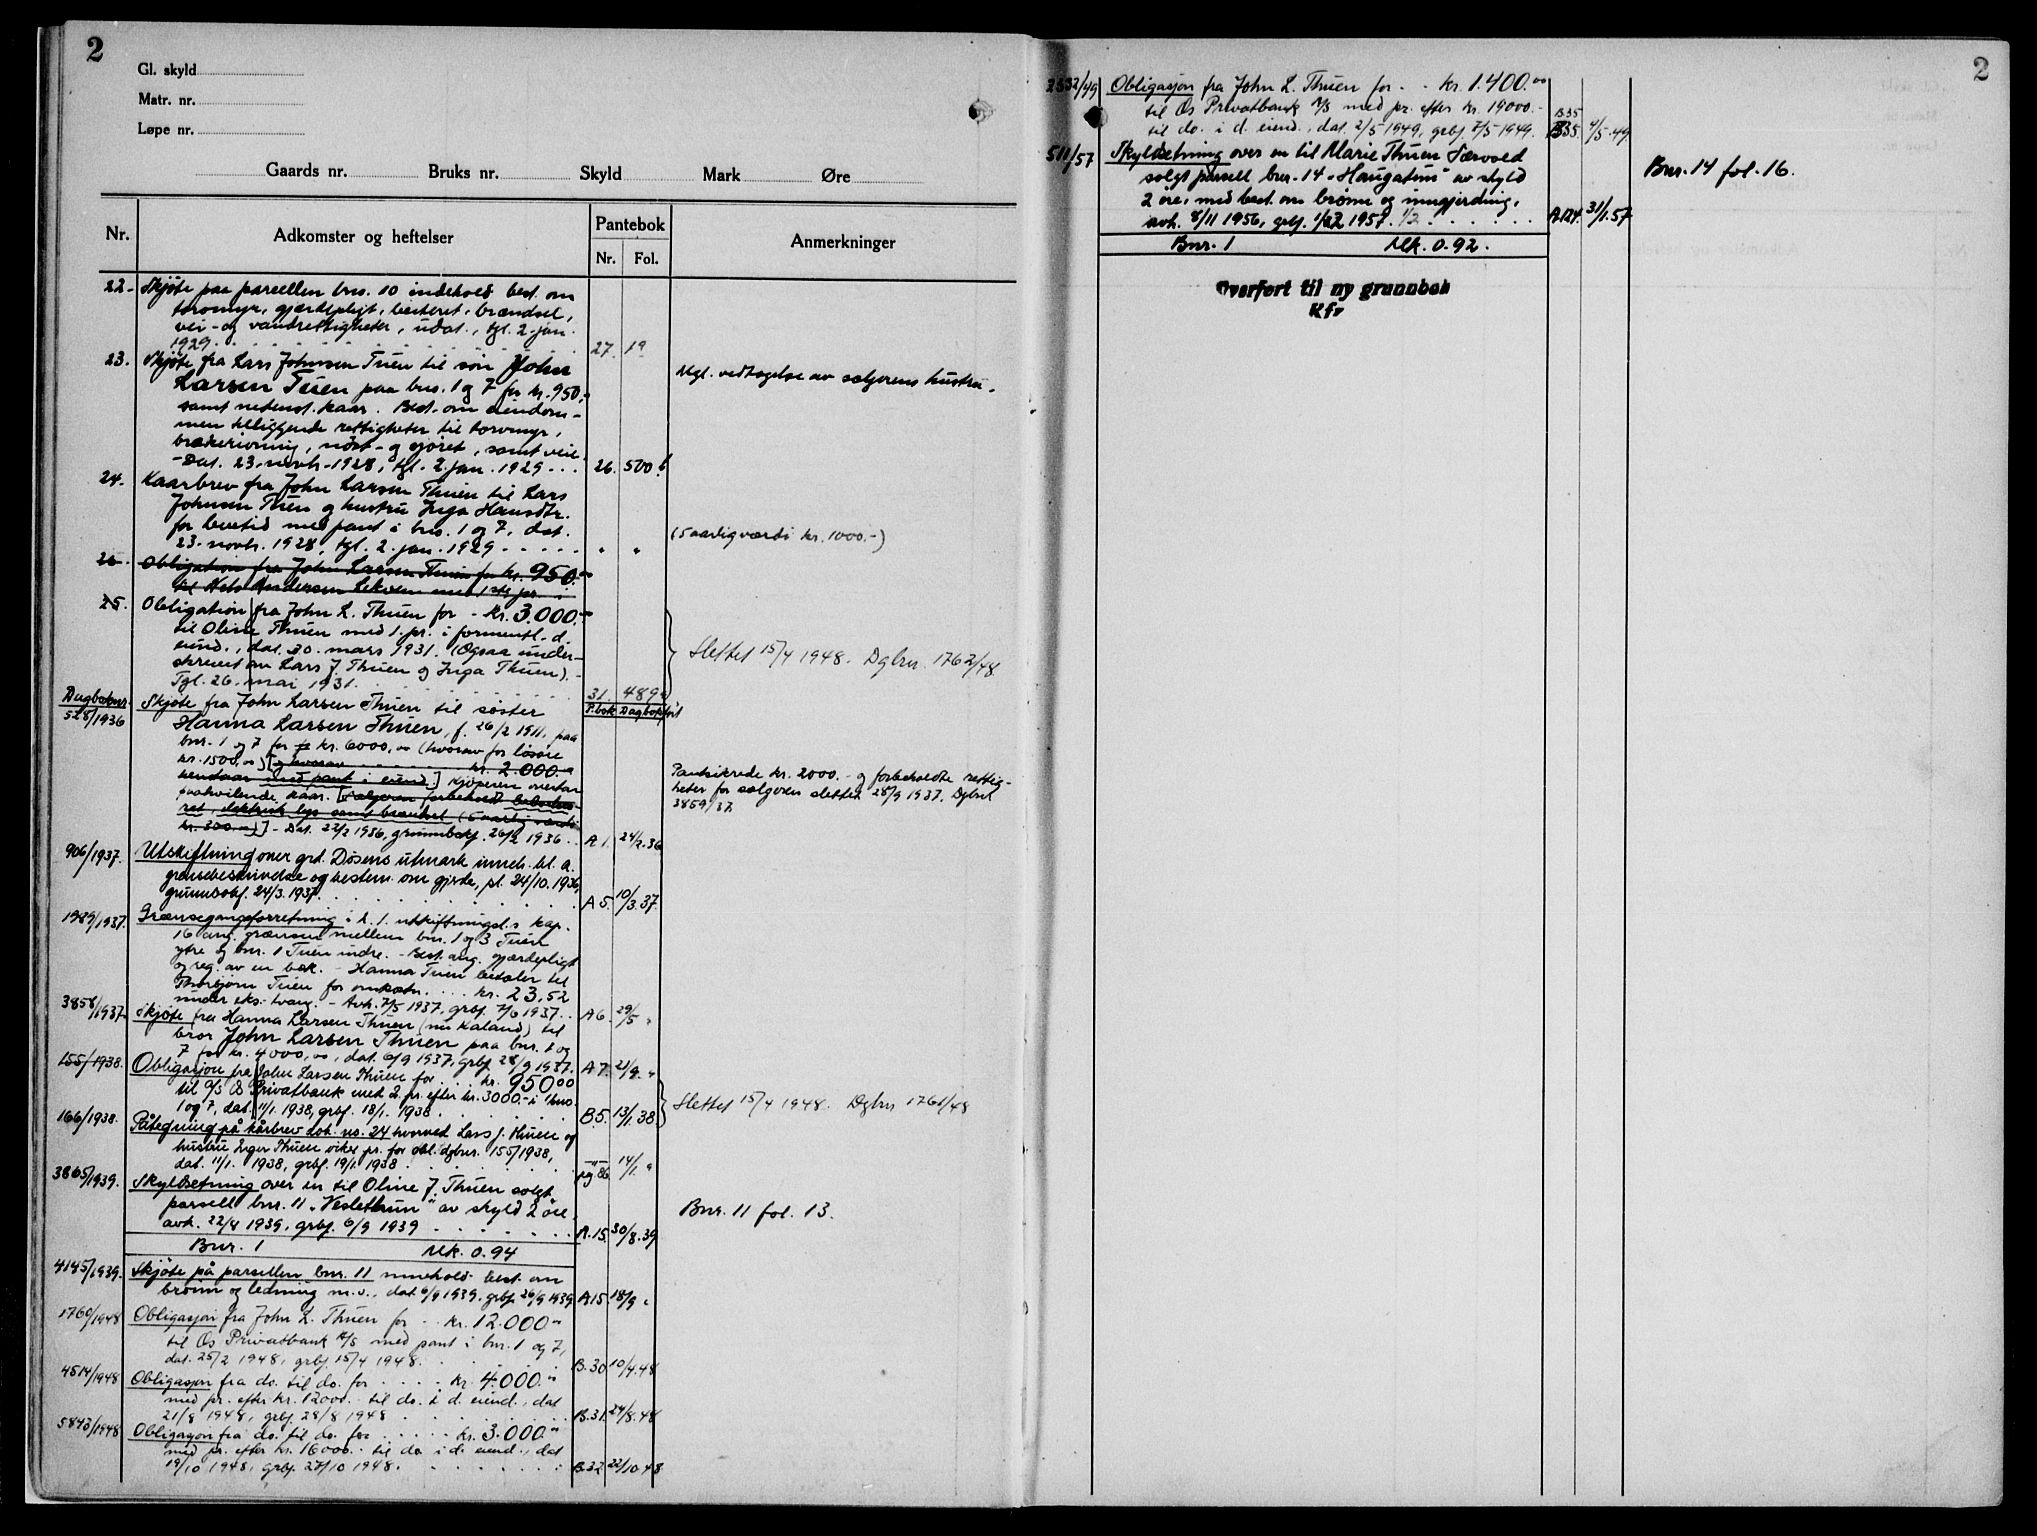 2
Gl. skyld
Matr. nr.
Løpe nr.
Gaards nr. Bruks nr. Skyld Mark Øre
Nr. Adkomster og heftelser Pantebok Anmerkninger
Nr. Fol.
22. Skjøte paa parcellen bnr. 10 indehold. best. om
torvmyr, gjærdepligt, beiteret, brændsel,
vei- og vandrettigheter, udat., tgl. 2. jan.
1929. 27. 1a
23. Skjøte fra Lars Johnsen Tuen til søn John
Larsen Tuen paa bnr. 1 og 7 for kr. 950.-
samt nedenst. kaar. Best. om eiendom-
men tilliggende rettigheter til torvmyr,
brakerivning, nøst- og sjøret, samt veie.
- Dat. 23. novb. 1928, tgl. 2. jan. 1929 26. 500b
Mgl. vedtagelse av sælgerens hustru.
24. Kaarbrev fra John Larsen Thuen til Lars
Johnsen Thuen og hustru Inga Hansdtr.
for levetid med pant i bnr. 1 og 7, dat.
23. novb. 1928, tgl. 2. jan. 1929 " "
(5 aarlig værdi kr. 1000.-)
Obligation fra John Larsen Thuen for kr. 950.-
til Nels Andersen Lekven med 1ste pr. i
25. Obligation fra John L. Thuen for - kr. 3.000.-
til Oline Thuen med 1. pr. i formentl. d.
eiend., dat. 30. mars 1931. (Ogsaa under-
skrevet av Lars J. Thuen og Inga Thuen). -
Tgl. 26. mai 1931. 31. 489a
Slettet 15/4 1948. Dgbnr. 1762/48.
Dagboknr. P.bok Dagbokført
528/1936 Skjøte fra John Larsen Thuen til søster
Hanna Larsen Thuen, f. 26/2 1911, paa
bnr. 1 og 7 for kr. 6000,00 (hvorav for løsøre
kr. 1500,00) [og hvorav kr. 2.000.-
henstaar med pant i eiend.] Kjøperen overtar
paahvilende kaar. [Sælgeren forbeholdt beboelses-
ret, elektrisk lys samt brændsel (5 aarlig værdi
kr. 300.00)] - Dat. 22/2 1936, grunnbokf. 26/2 1936 A 1. 24/2.36
Pantsikrede kr. 2000.- og forbeholdte rettig-
heter for sælgeren slettet 28/9 1937. Dgbnr.
3859/37.
906/1937. Utskiftning over grd. Døsens utmark inneh. bl. a.
grensebeskrivelse og bestem. om gjerde, sl. 24/10.1936,
grunnbokf. 24/3.1937. A 5. 10/3.37.
1989/1937. Grænsegangsforretning i h. t. utskiftningsl.s kap.
16 ang. grænsen mellem bnr. 1 og 3 Tuen
ytre og bnr. 1 Tuen indre. - Best. ang. gjærdepligt
og reg. av en bæk. - Hanna Tuen betaler til
Thorbjørn Tuen for omkostn. kr. 23,52
under eks. tvang. - Avh. 7/5 1937, grbf. 7/6 1937. A 6. 29/5 "
3858/1937 Skjøte fra Hanna Larsen Thuen (nu Kaland) til
bror John Larsen Thuen paa bnr. 1 og
7 for kr. 4000,00, dat. 6/9 1937, grbf. 28/9 1937. A 7. 21/9. "
155/1938. Obligasjon fra John Larsen Thuen for kr. 950 00
til A/S Os Privatbank med 2. pr. efter kr. 3000.- i bnr.
1 og 7, dat. 11/1. 1938, grbf. 18/1. 1938 B.5. 13/1.38
Slettet 15/4 1948. Dgbnr 1761/48
166/1938. Påtegning på kårbrev dok. nr. 24 hvorved Lars J. Thuen og
hustru Inger Thuen viker pr. for obl. dgbnr. 155/1938,
dat. 11/1. 1938, grbf. 19/1. 1938 pg. 86 14/1. "
3865/1939. Skyldsetning over en til Oline J. Thuen solgt
parsell bnr. 11 „Vesletun" av skyld 2 øre,
avh. 22/4 1939, grbf. 6/9 1939 A.15. 30/8.39
Bnr. 11 fol. 13.
Bnr. 1 Mk. 0.94
4145/1939. Skjøte på parsellen bnr. 11 innehold. best. om
brønn og ledning m.v., dat. 6/9 1939, grbf. 26/9 1939 A15 18/9 "
1760/1948 Obligasjon fra John L. Thuen for kr. 12.000"
til Os Privatbank A/S med pant i bnr. 1 og 7,
dat. 25/2 1948, grbf. 15/4 1948. B.30 10/4.48
4514/1948 Obligasjon fra do. til do. for kr. 4.000."
med pr. efter kr. 12000. til do. i d. eiend., dat
21/8 1948, grbf. 28/8 1948 B.31. 24/8.48
5843/1948 Obligasjon fra do. til do. for kr. 3.000."
med pr. efter kr. 16000.- til do i d. eiend., dat
19/10 1948, grbf. 27/10 1948. B.32 22/10.48
2
2332/49 Obligasjon fra John L. Thuen for - - kr. 1.400.00
til Os Privatbank A/S med pr. efter kr. 19000.-
til do. i d. eiend., dat. 2/5 1949, grbf. 7/5 1949. B35. 4/5.49
511/57 Skyldsetning over en til Marie Thuen Særvold
solgt parsell bnr. 14 „Haugatun" av skyld
2 øre, med best. om brønn og inngjerding,
avh. 8/11 1956, grbf. 1/2 1957. A.124. 31/1.57
Bnr. 14 fol. 16.
Bnr. 1 Mk. 0.92.
Overført til ny grunnbok
Kfr